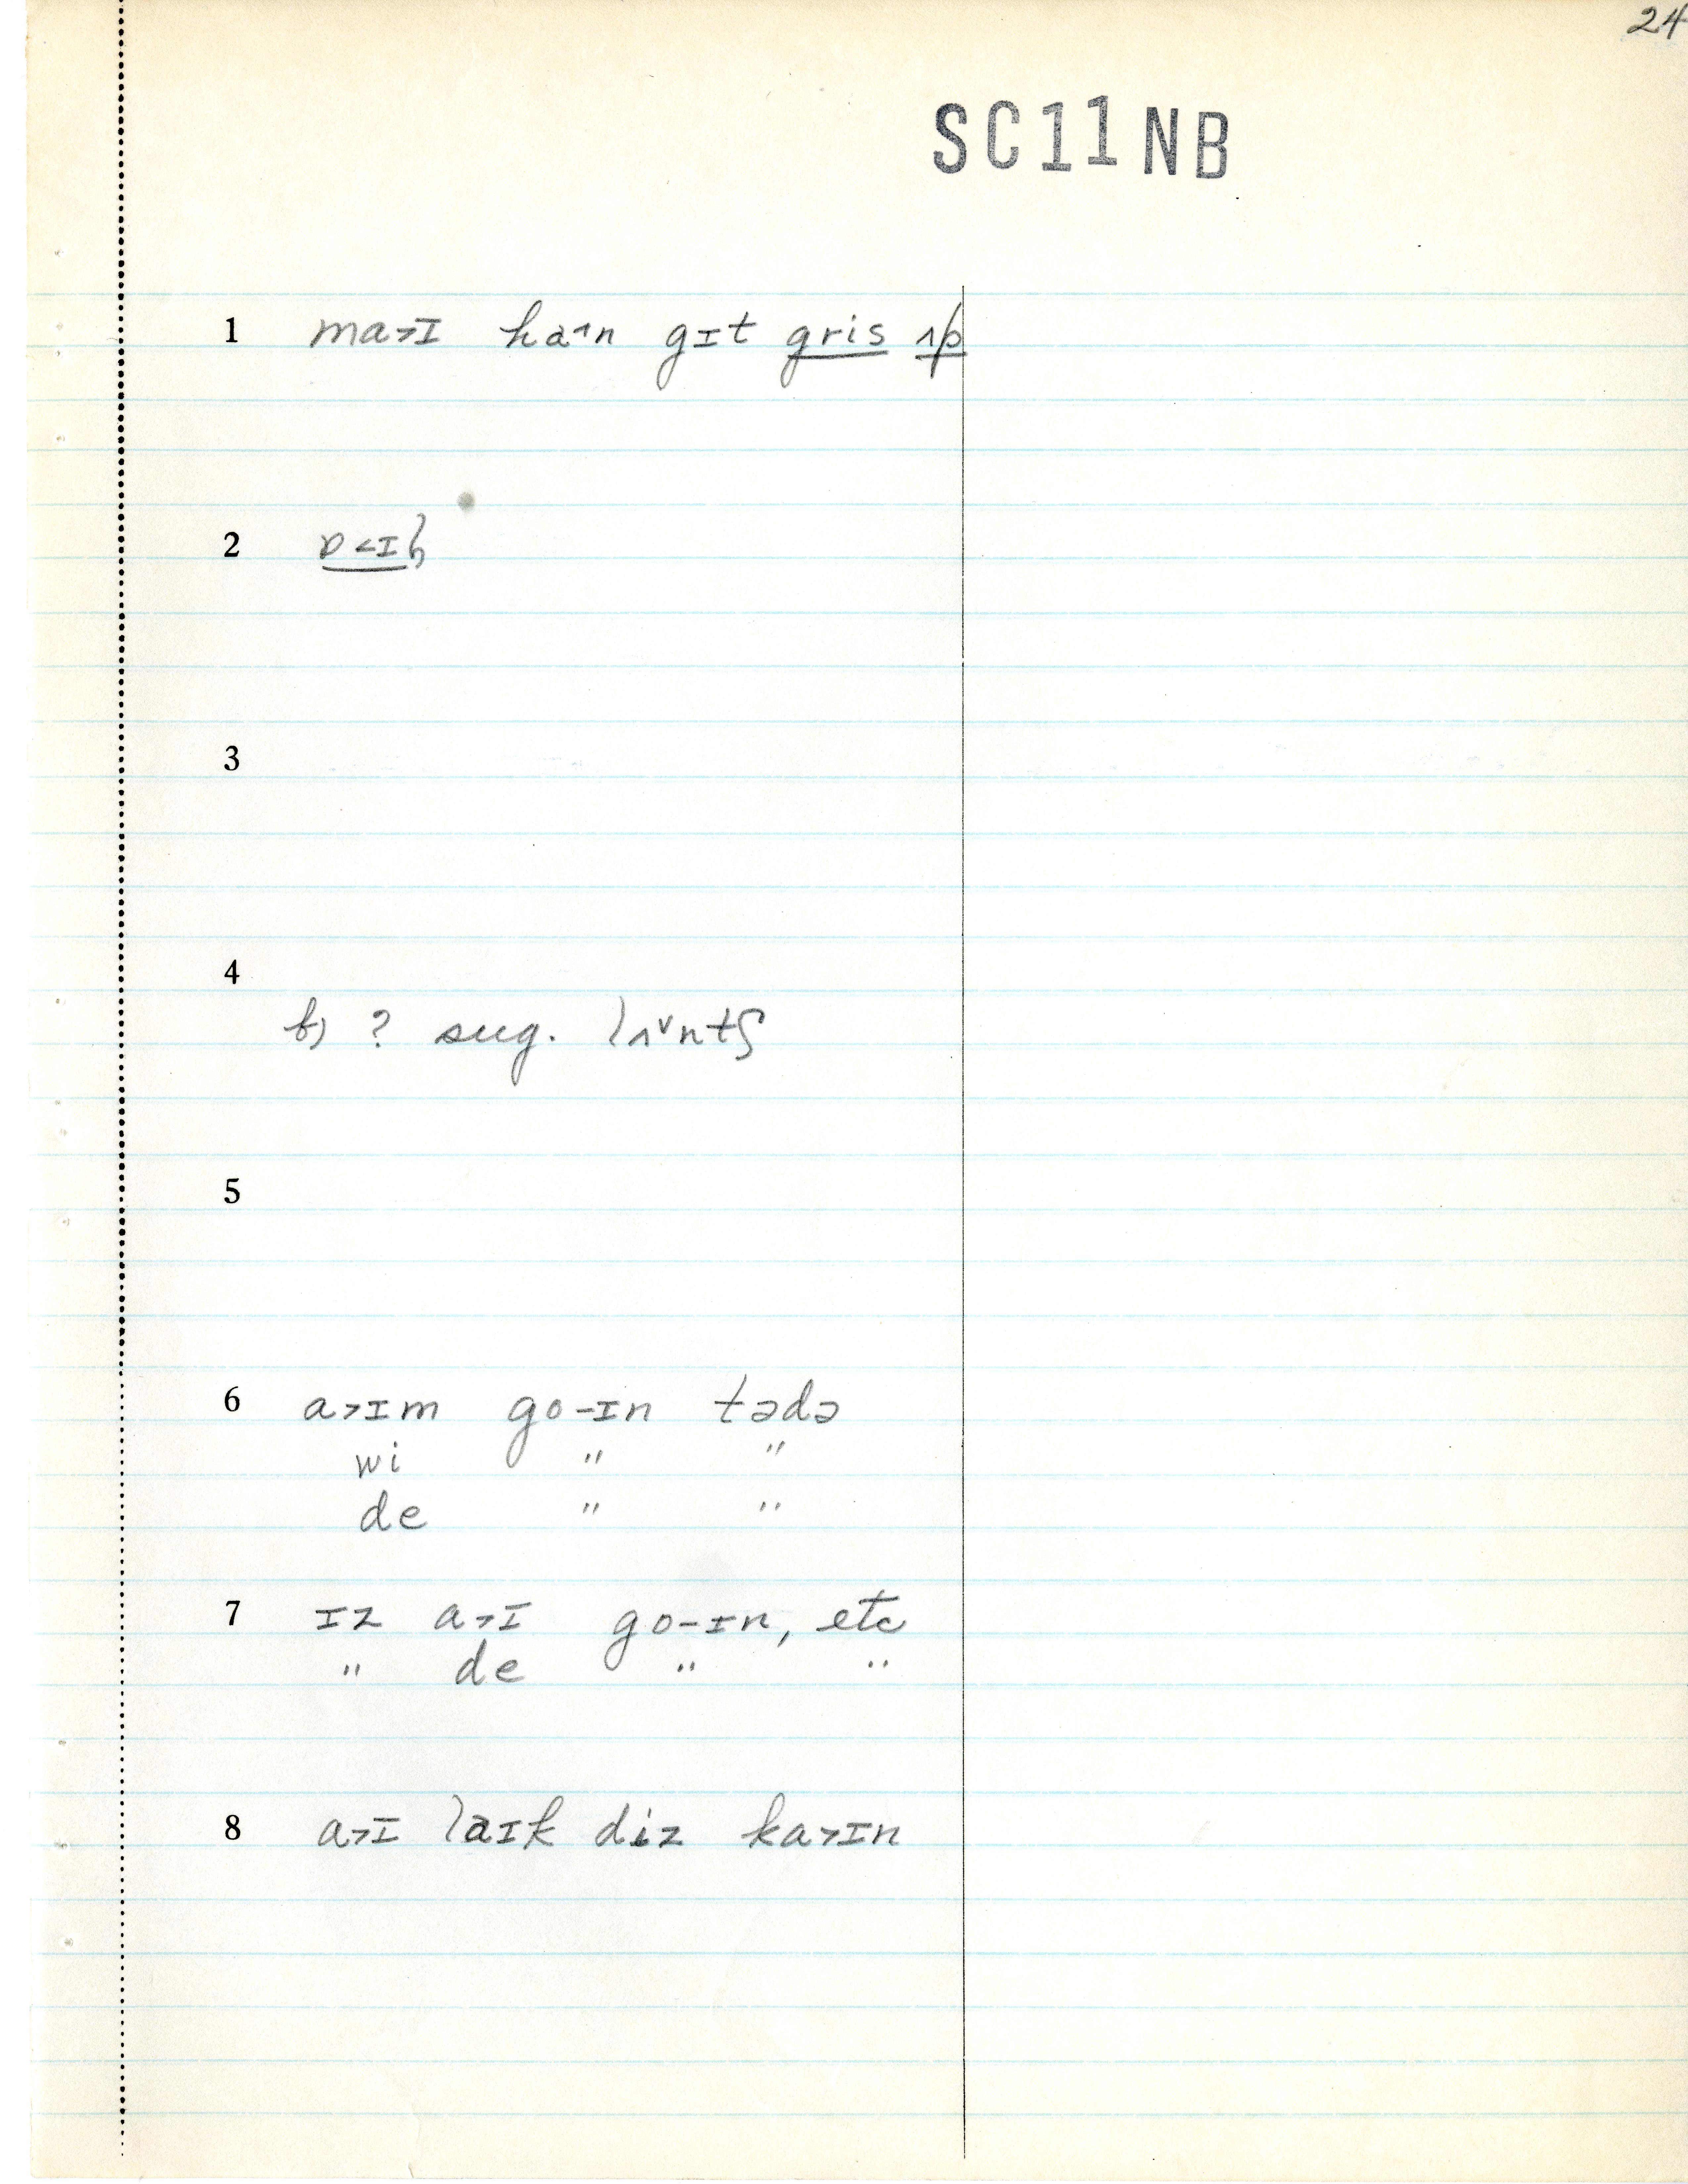 24
SC11NB
1 ma>ɪ ha^n gɪt gris ʌp
2 ɒ<ɪɫ
3
4
b) ? sug. lʌ˅ntʃ
5
6 a>ɪm go-ɪn tədə
wi " "
de " "
7 ɪz a>ɪ go-ɪn, etc
" de " "
8 a>ɪ laɪk diz ka>ɪn